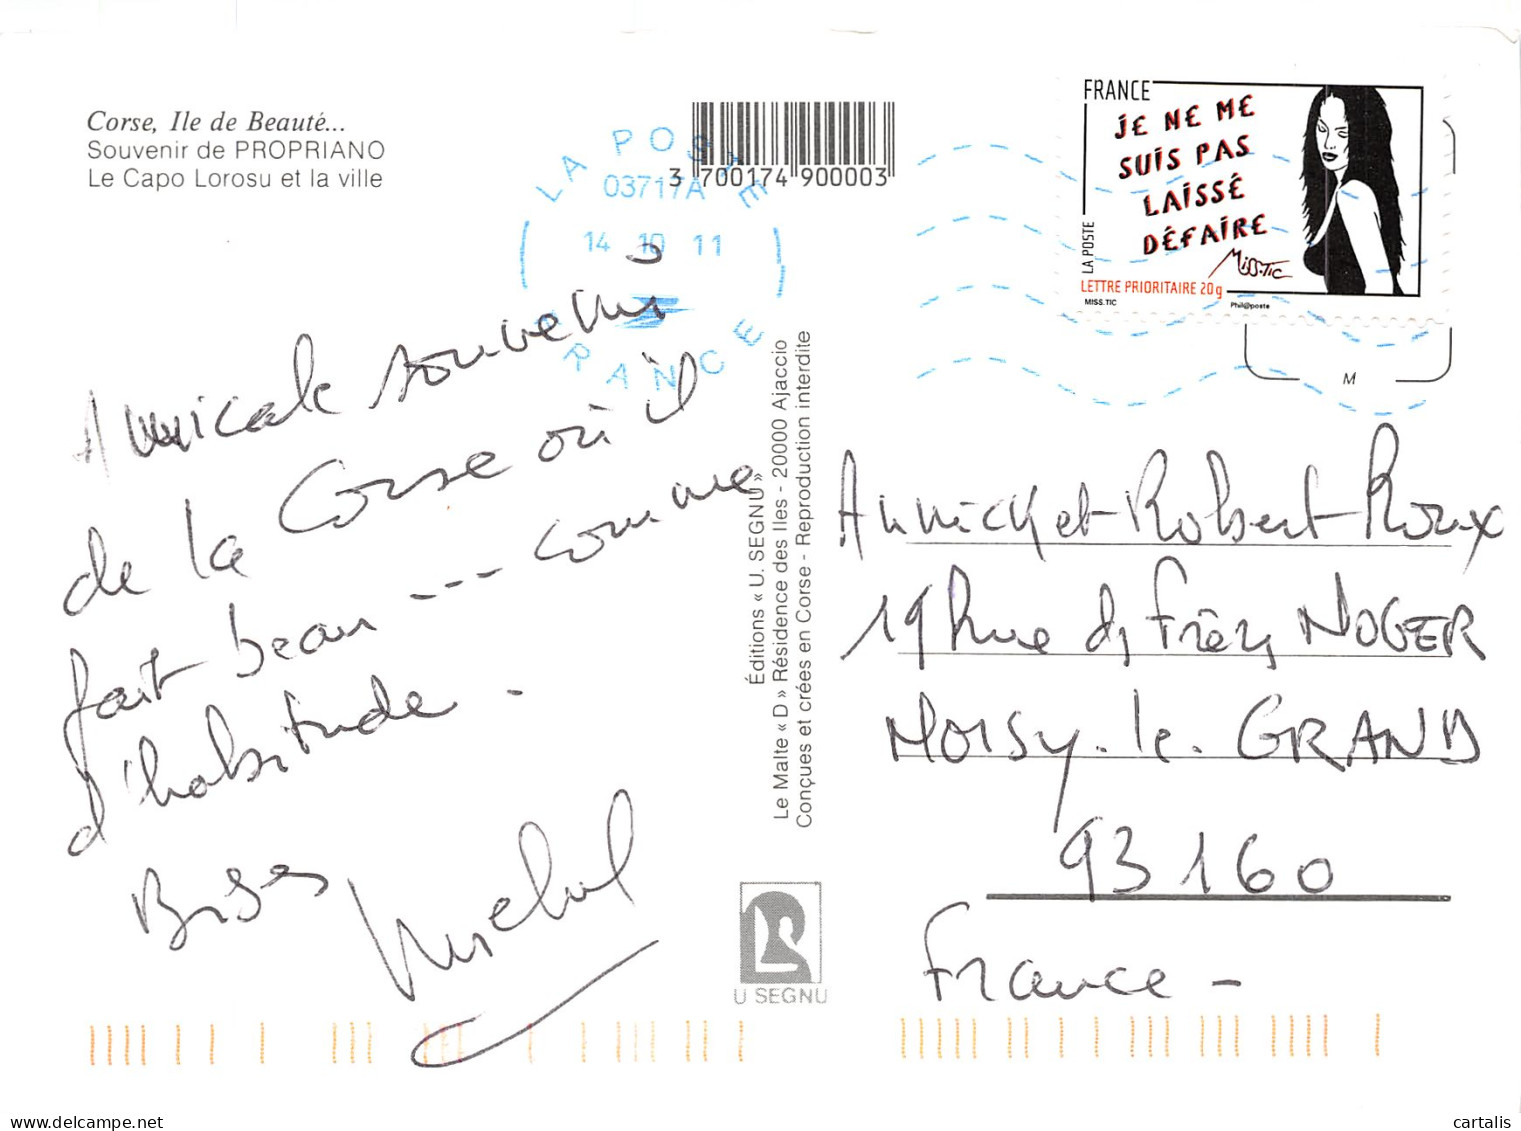 Corse, Ile de Beauté...
Souvenir de PROPRIANO
Le Capo Lorosu et la ville
3 700174 900003
LA POSTE
03717A
14 10 11
FRANCE
FRANCE
JE NE ME
SUIS PAS
LAISSÉ
DÉFAIRE
MISS.TIC
LA POSTE
LETTRE PRIORITAIRE 20g
MISS.TIC
Phil@poste
M
Amicale souvenir
de la Corse où il
fait beau --- comme
d'habitude.
Bises
Michel
Éditions « U. SEGNU »
Le Malte « D » Résidence des Iles - 20000 Ajaccio
Conçues et crées en Corse - Reproduction interdite
U SEGNU
Annick et Robert Roux
19 Rue des Frères NOGER
NOISY-le-GRAND
93160
France -
cartalis